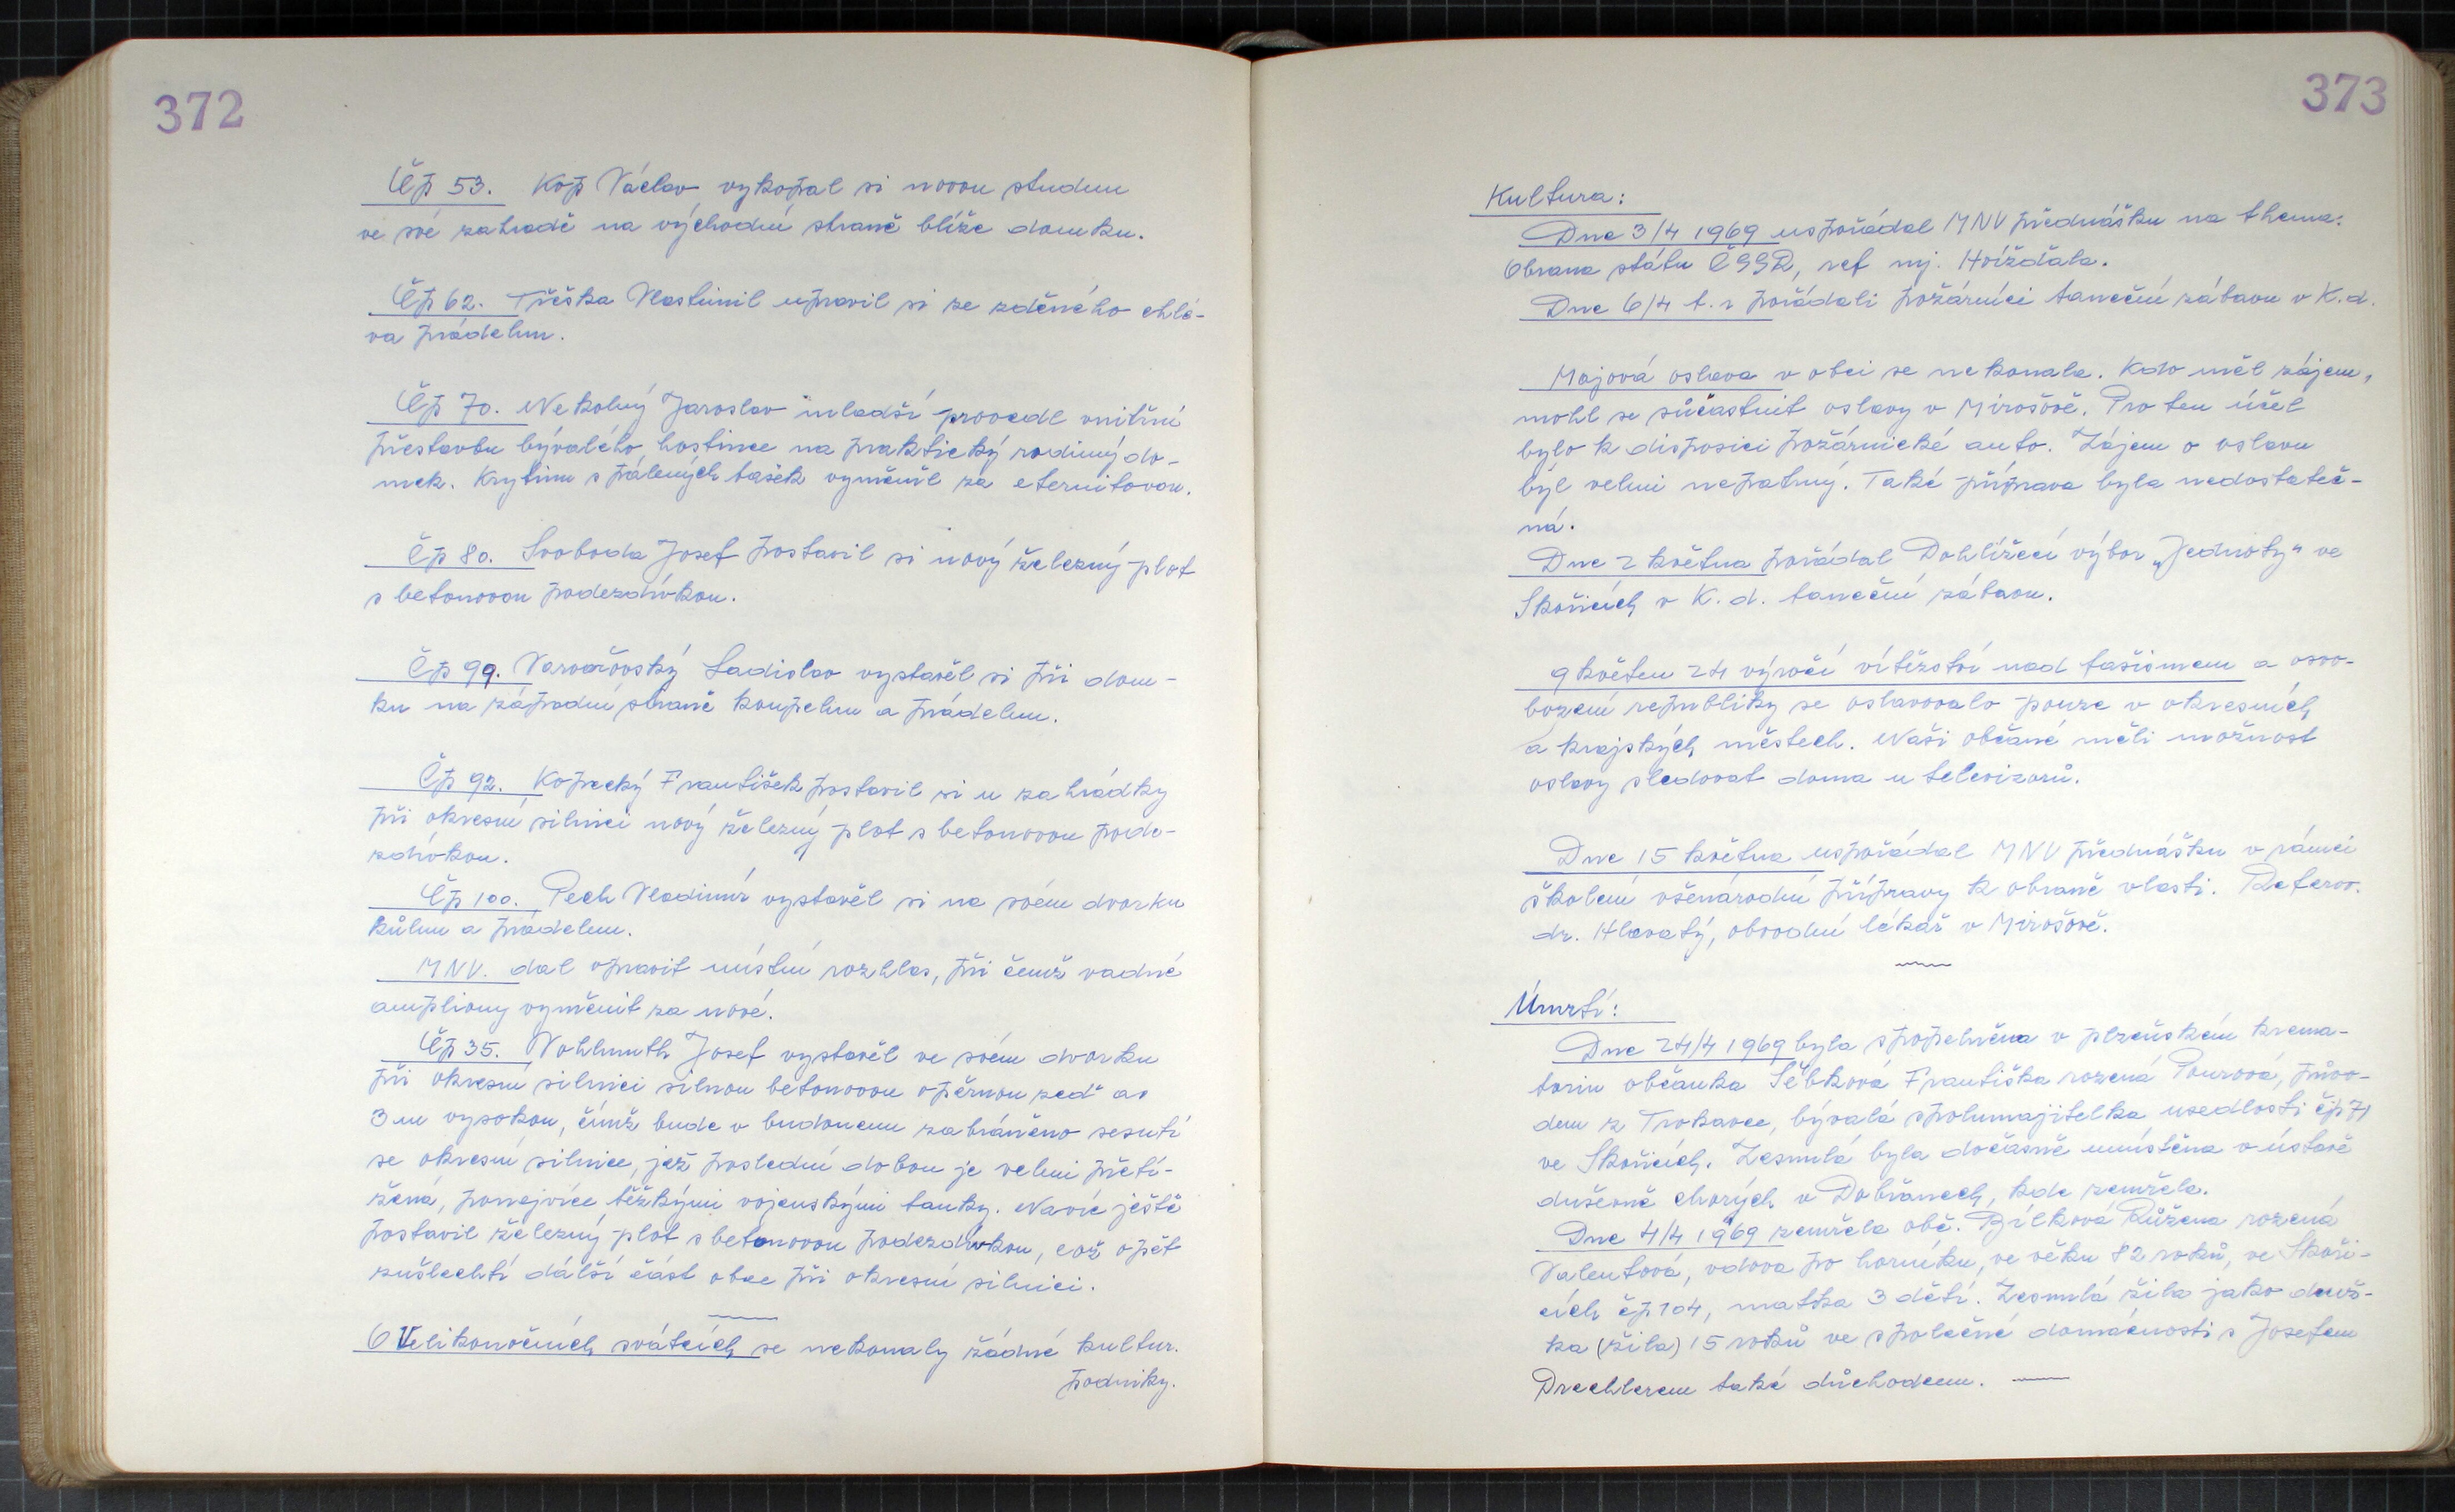 372
Čp 53. Kop Václav vykopal si novou studnu
ve své zahradě na východní straně blíže domku.
Čp 62. Třeška Vlastimil upravil si ze zděného chlé-
va prádelnu.
Čp 70. Nekolný Jaroslav mladší provedl vnitřní
přestavbu bývalého hostince na praktický rodinný do-
mek. Krytinu s pálených tašek vyměnil za eternitovou.
Čp 80. Svoboda Josef postavil si nový železný plot
s betonovou podezdívkou.
Čp 99. Varvařovský Ladislav vystavěl si při dom-
ku na západní straně koupelnu a prádelnu.
Čp 92. Kopecký František postavil si u zahrádky
při okresní silnici nový železný plot s betonovou pode-
zdívkou.
Čp 100. Pech Vladimír vystavěl si na svém dvorku
kůlnu a prádelnu.
MNV. dal opravit místní rozhlas, při čemž vadné
ampliony vyměnit za nové.
Čp 35. Vohlmuth Josef vystavěl ve svém dvorku
při okresní silnici silnou betonovou opěrnou zeď as
3 m vysokou, čímž bude v budoucnu zabráněno sesutí
se okresní silnice, jež poslední dobou je velmi přetí-
žená, ponejvíce těžkými vojenskými tanky. Navíc ještě
postavil železný plot s betonovou podezdívkou, což opět
zušlechtí dálší část obce při okresní silnici.
O Velikonočních svátcích se nekonaly žádné kultur.
podniky.
373
Kultura:
Dne 3/4 1969 uspořádal MNV přednášku na thema:
Obrana státu ČSSR, ref mj. Hvížďala.
Dne 6/4 t. r pořádali požárníci taneční zábavu v K.d.
Májová oslava v obci se nekonala. Kdo měl zájem,
mohl se súčastnit oslavy v Mirošově. Pro ten účel
bylo k disposici požárnické auto. Zájem o oslavu
byl velmi nepatrný. Také příprava byla nedostateč-
ná.
Dne 2 května pořádal Dohlížecí výbor „Jednoty" ve
Skořicích v K.d. taneční zábavu.
9 květen 24 výročí vítězství nad fašismem a osvo-
bození republiky se oslavovalo pouze v okresních
a krajských městech. Naši občané měli možnost
oslavy sledovat doma u televizorů.
Dne 15 května uspořádal MNV přednášku v rámci
školení všenárodní přípravy k obraně vlasti. Referov.
dr. Hlavatý, obvodní lékař v Mirošově.
Úmrtí:
Dne 24/4 1969 byla spopelněna v plzeňském krema-
toriu občanka Sebková Františka rozená Pourová, půvo-
dem z Trokavce, bývalá spolumajitelka usedlosti čp 71
ve Skořicích. Zesnulá byla dočasně umístěna v ústavě
duševně chorých v Dobřanech, kde zemřela.
Dne 4/4 1969 zemřela obč. Bílková Růžena rozená
Valentová, vdova po horníku, ve věku 82 roků, ve Skoři-
cích čp 104, matka 3 dětí. Zesnulá žila jako druž-
ka (žila) 15 roků ve společné domácnosti s Josefem
Drechlerem také důchodcem.